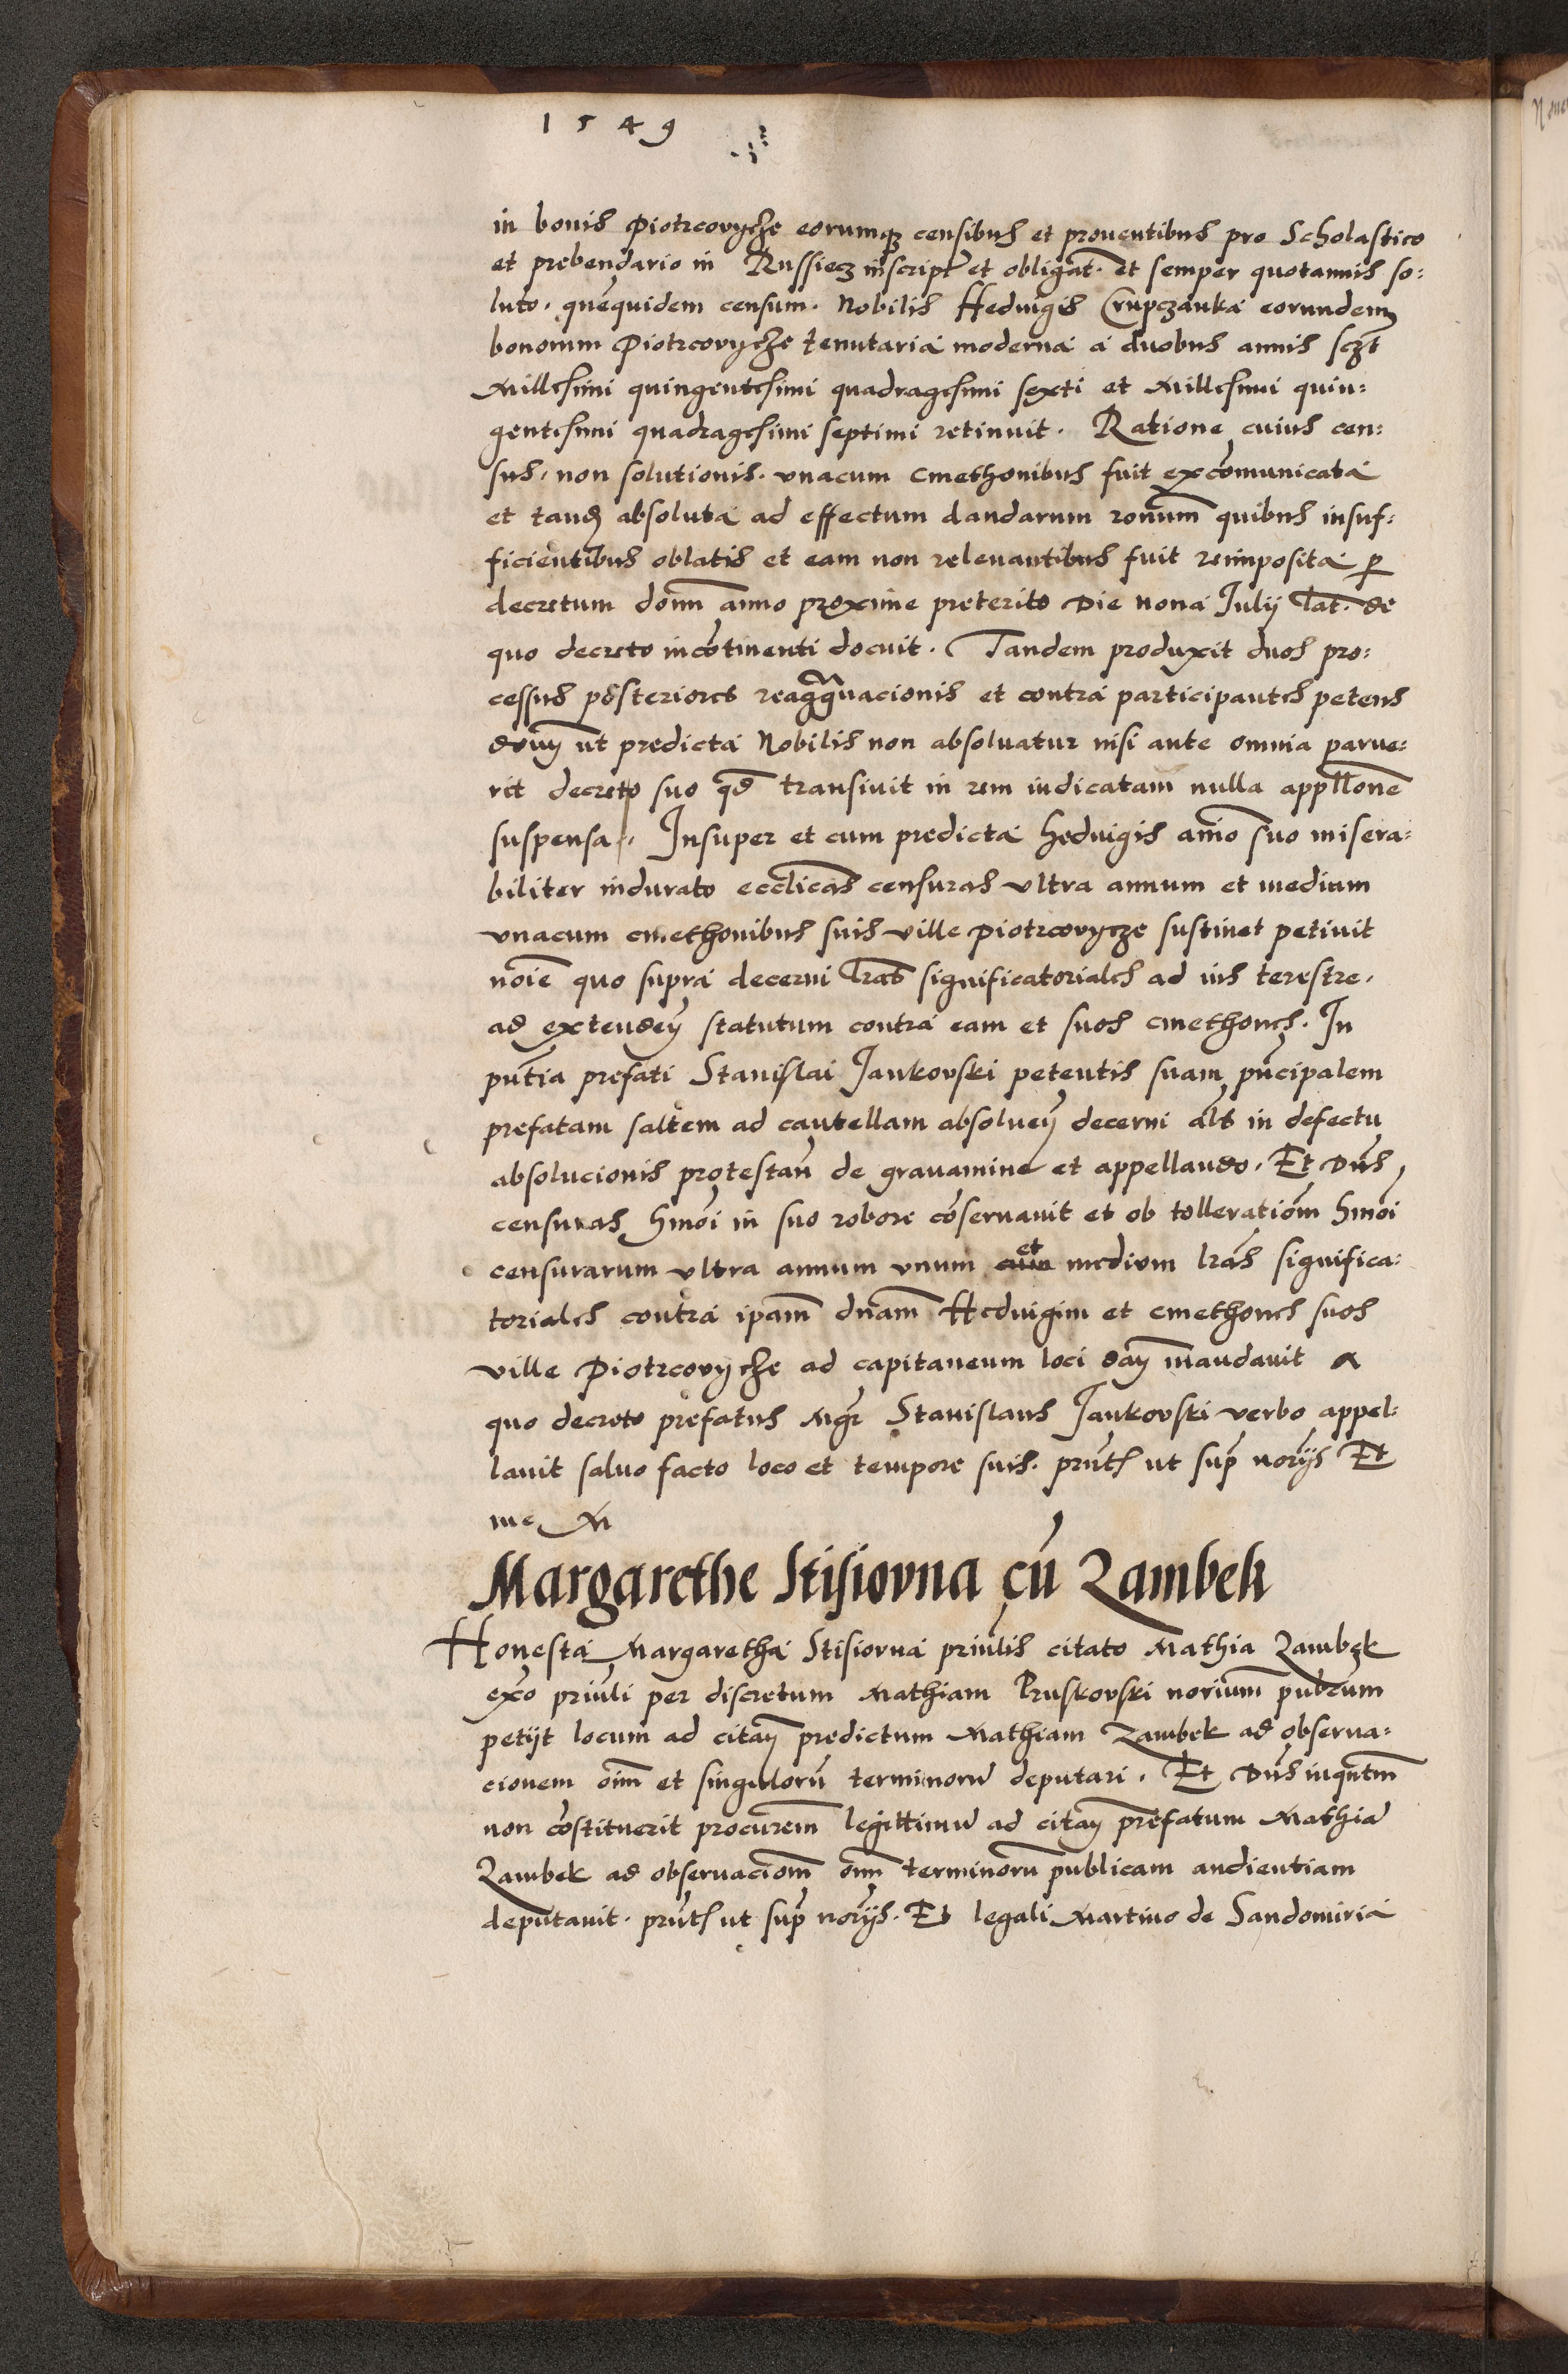 1549
in bonis Piotrcovycze eorumq; censibus et prouentibus pro Scholastico
et prebendario in Russiecz inscript et obligat. et semper quotannis so:
luto. quēquidem censum. Nobilis Heduigis Crupczanka eorundem
bonorum Piotrcovycze tenutaria moderna a duobus annis sczt
Millesimi quingentesimi quadragesimi sexti et Millesimi quin:
gentesimi quadragesimi septimi retinuit. Ratione cuius cen:
sus, non solutionis. vnacum cmethonibus fuit excōmunicata
et tand absoluta ad effectum dandarum ronum quibus insuf:
ficientibus oblatis et eam non releuantibus fuit reimposita p
decretum domī anno proxime preterito Die nona Iulij lat. de
quo decreto incōtinenti docuit. Tandem produxit duos pro:
cessus posteriores reaggrauacionis et contra participantes petens
 ut predicta Nobilis non absoluatur nisi ante omnia parue:
rit decreto suo qd transiuit in rem iudicatam nulla appllone
suspensa. Insuper et cum predicta Heduigis aīmo suo misera:
biliter indurato ecclicas censuras vltra annum et medium
vnacum cmethonibus suis ville Piotrcovycze sustinet petiuit
noīe quo supra decerni lras significatoriales ad ius terestre.
ad extendeȳ statutum contra eam et suos cmethones. In
pūtia prefati Stanislai Jankovski petentis suam pūcipalem
prefatam saltem ad cautellam absolueȳ decerni als in defectu
absolucionis protestan de grauamine et appellando. Et Dūs
censuras hmōi in suo robore cōseruauit et ob tolleratiom hmōi
censurarum vltra annum vnum et medium lras significa:
toriales contra ipam dnam Heduigim et cmethones suos
ville Piotrcovycze ad capitaneum loci day mandauit A
quo decreto prefatus Mgr Stanislaus Jankovski verbo appel:
lauit saluo facto loco et tempore suis. prūtb ut sup norijs Et
me M
Margarethe Stisiovna cū Zambek
Honesta Margaretha Stisiovna priūlis citato Mathia Zambek
exō priūli per discretum Mathiam Pruskovski norium pubcum
petijt locum ad citaȳ predictum Mathiam Zambek ad obserua:
cionem oīm et singulorū terminorū deputari. Et Dūs inqntm
non cōstituerit procurem legittimū ad citaȳ prefatum Mathiā
Zambek ad obseruaciom oīm terminorū publicam audientiam
deputauit. prūtb ut sup norijs. Et legali Martino de Sandomiria